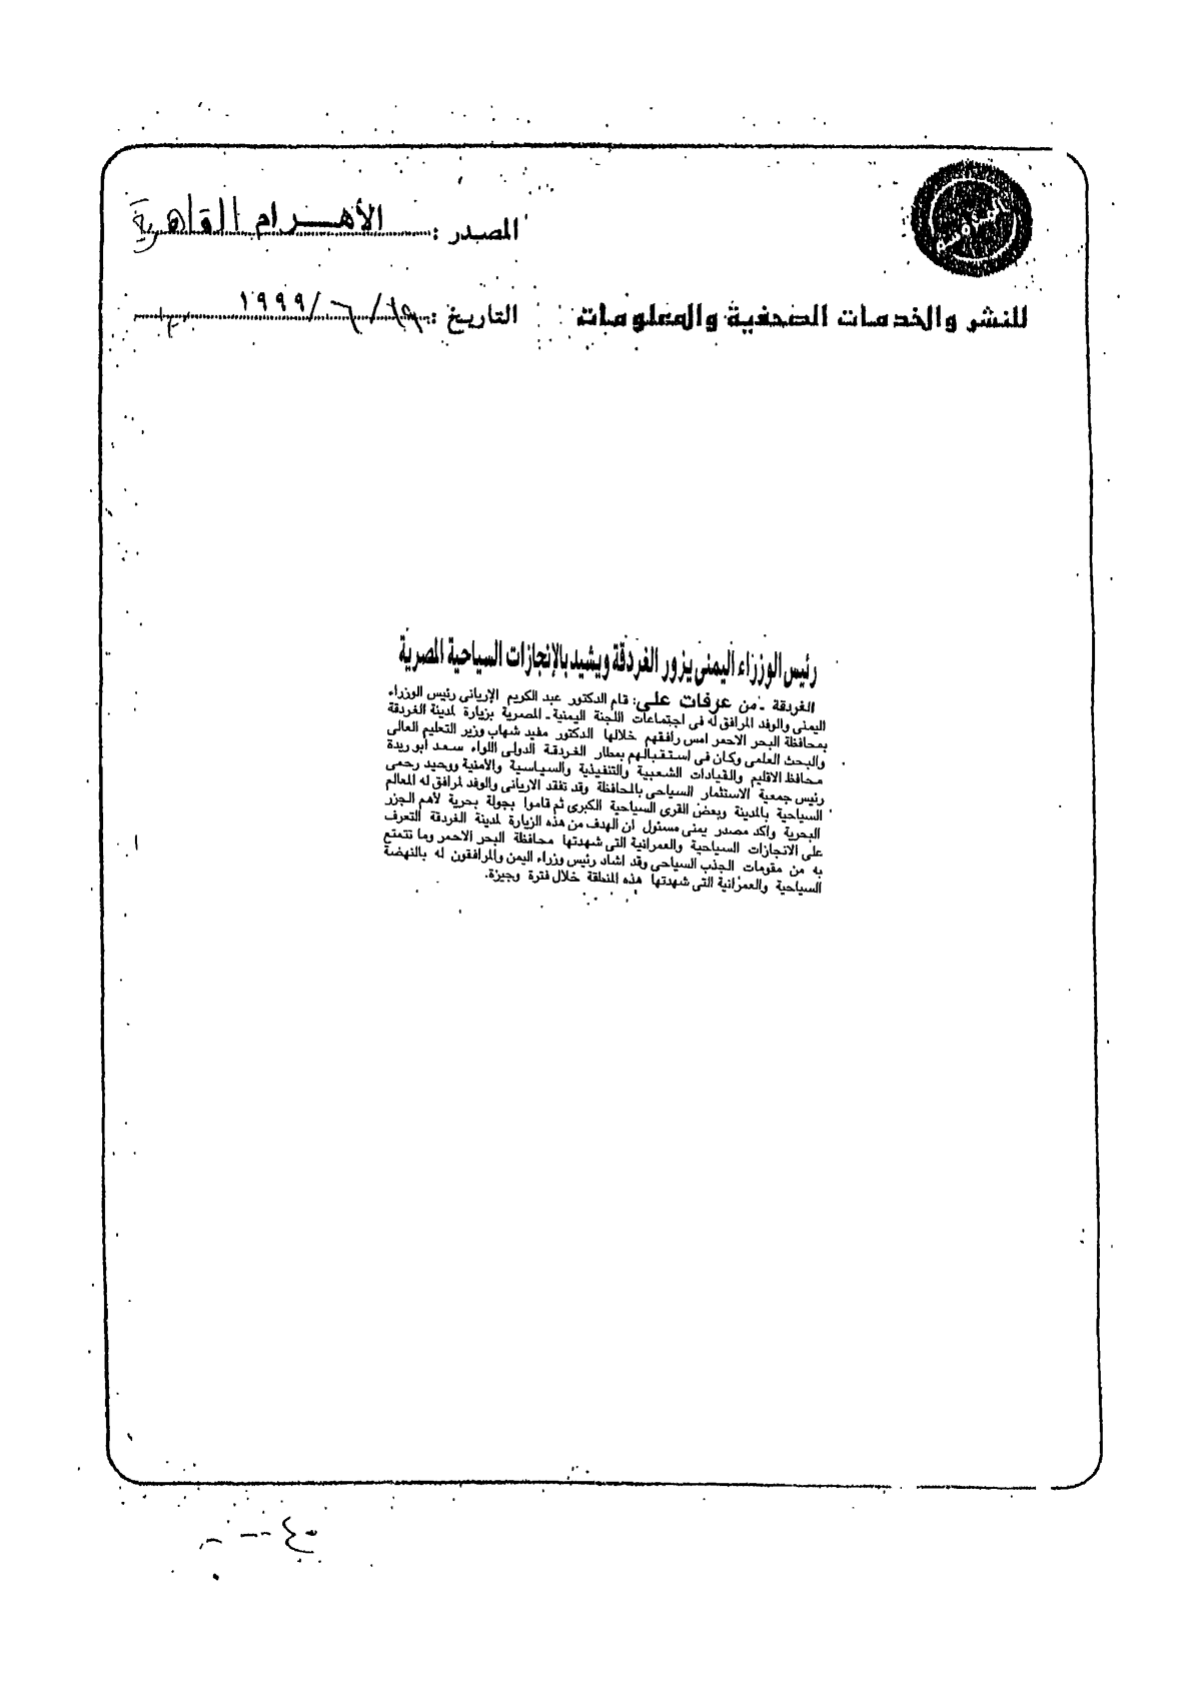 المصدر : الأهرام القاهرية
للنشر والخدمات الصحفية والمعلومات
التاريخ : ١٩٩٩/٦/
رئيس الوزراء اليمنى يزور الغردقة ويشيد بالإنجازات السياحية المصرية
الغردقة ـ من عرفات على: قام الدكتور عبد الكريم الإريانى رئيس الوزراء
اليمنى والوفد المرافق له فى اجتماعات اللجنة اليمنية ـ المصرية بزيارة لمدينة الغردقة
بمحافظة البحر الاحمر امس رافقهم خلالها الدكتور مفيد شهاب وزير التعليم العالى
والبحث العلمى وكان فى استقبالهم بمطار الغردقة الدولى اللواء سعد أبو ريدة
محافظ الاقليم والقيادات الشعبية والتنفيذية والسياسية والأمنية ووحيد رحمى
رئيس جمعية الاستثمار السياحى بالمحافظة وقد تفقد الاريانى والوفد لمرافق له المعالم
السياحية بالمدينة وبعض القرى السياحية الكبرى ثم قاموا بجولة بحرية لأهم الجزر
البحرية واكد مصدر يمنى مسئول ان الهدف من هذه الزيارة لمدينة الغردقة التعرف
على الانجازات السياحية والعمرانية التى شهدتها محافظة البحر الاحمر وما تتمتع
به من مقومات الجذب السياحى وقد اشاد رئيس وزراء اليمن والمرافقون له بالنهضة
السياحية والعمرانية التى شهدتها هذه المنطقة خلال فترة وجيزة.